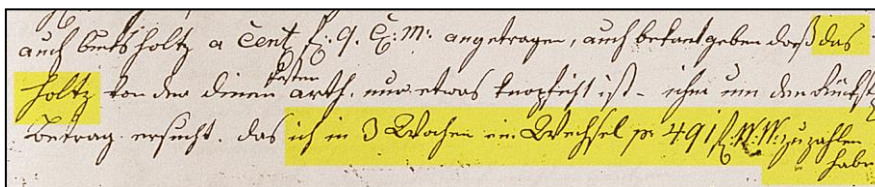 auch bietsholtz a Cent f: 9. C: M: angetragen, auch bekant geben daß das
holtz von der dinen besten arth. nur etwas knopficht ist - ihn um den
betrag ersucht. das ich in 3 Wochen ein Wechsel pr 491 f: W: W: zu zahlen
habe